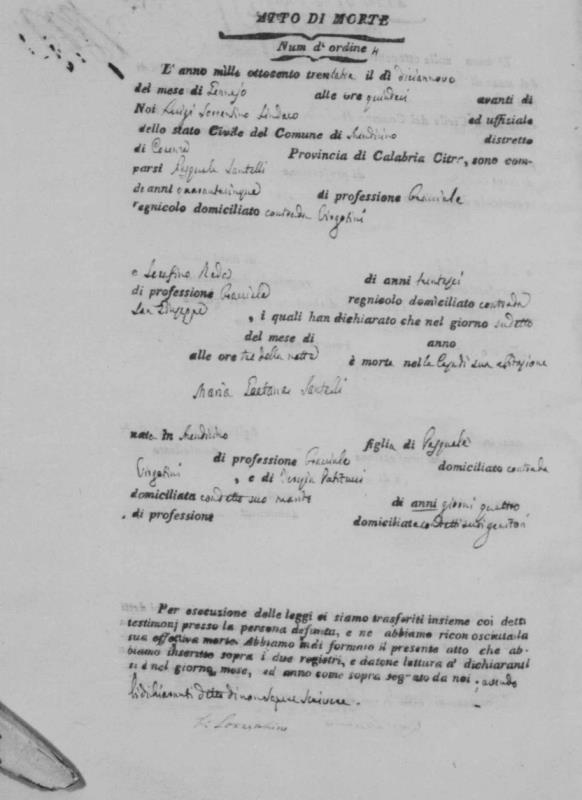 ATTO DI MORTE
Num d'ordine 4
L'anno mille ottocento trentatre il dì diciannove
del mese di Gennajo alle ore quindeci avanti di
Noi Luigi Sorrentino Sindaco ed uffiziale
dello stato Civile del Comune di Mendicino distretto
di Cosenza Provincia di Calabria Citra, sono com-
parsi Pasquale Santelli
de anni quarantacinque di professione Bracciale
regnicolo domiciliato contrada
e Serafino Reda di anni trentasei
di professione Bracciale regnicolo domiciliato contrada
San Giuseppe , i quali han dichiarato che nel giorno sudetto
del mese di anno
alle ore tre della notte è morta nella Casa di sua abitazione
Maria Gaetana Santelli
nata in Mendicino figlia di Pasquale
di professione Bracciale domiciliato contrada
, e di Teresja
domiciliata con detto suo marito di anni giorni quattro
di professione domiciliata co detti suoi genitori
Per esecuzione delle leggi ci siamo trasferiti insieme coi detti
testimonj presso la persona defunta, e ne abbiamo riconosciuta la
sua effettiva morte. Abbiamo indi formato il presente atto che ab-
biamo inserito sopra i due registri, e datone lettura a' dichiaranti
si è nel giorno, mese, ed anno come sopra segnato da noi; avendo
li dichiaranti detto di non sapere scrivere.
L. Sorrentino